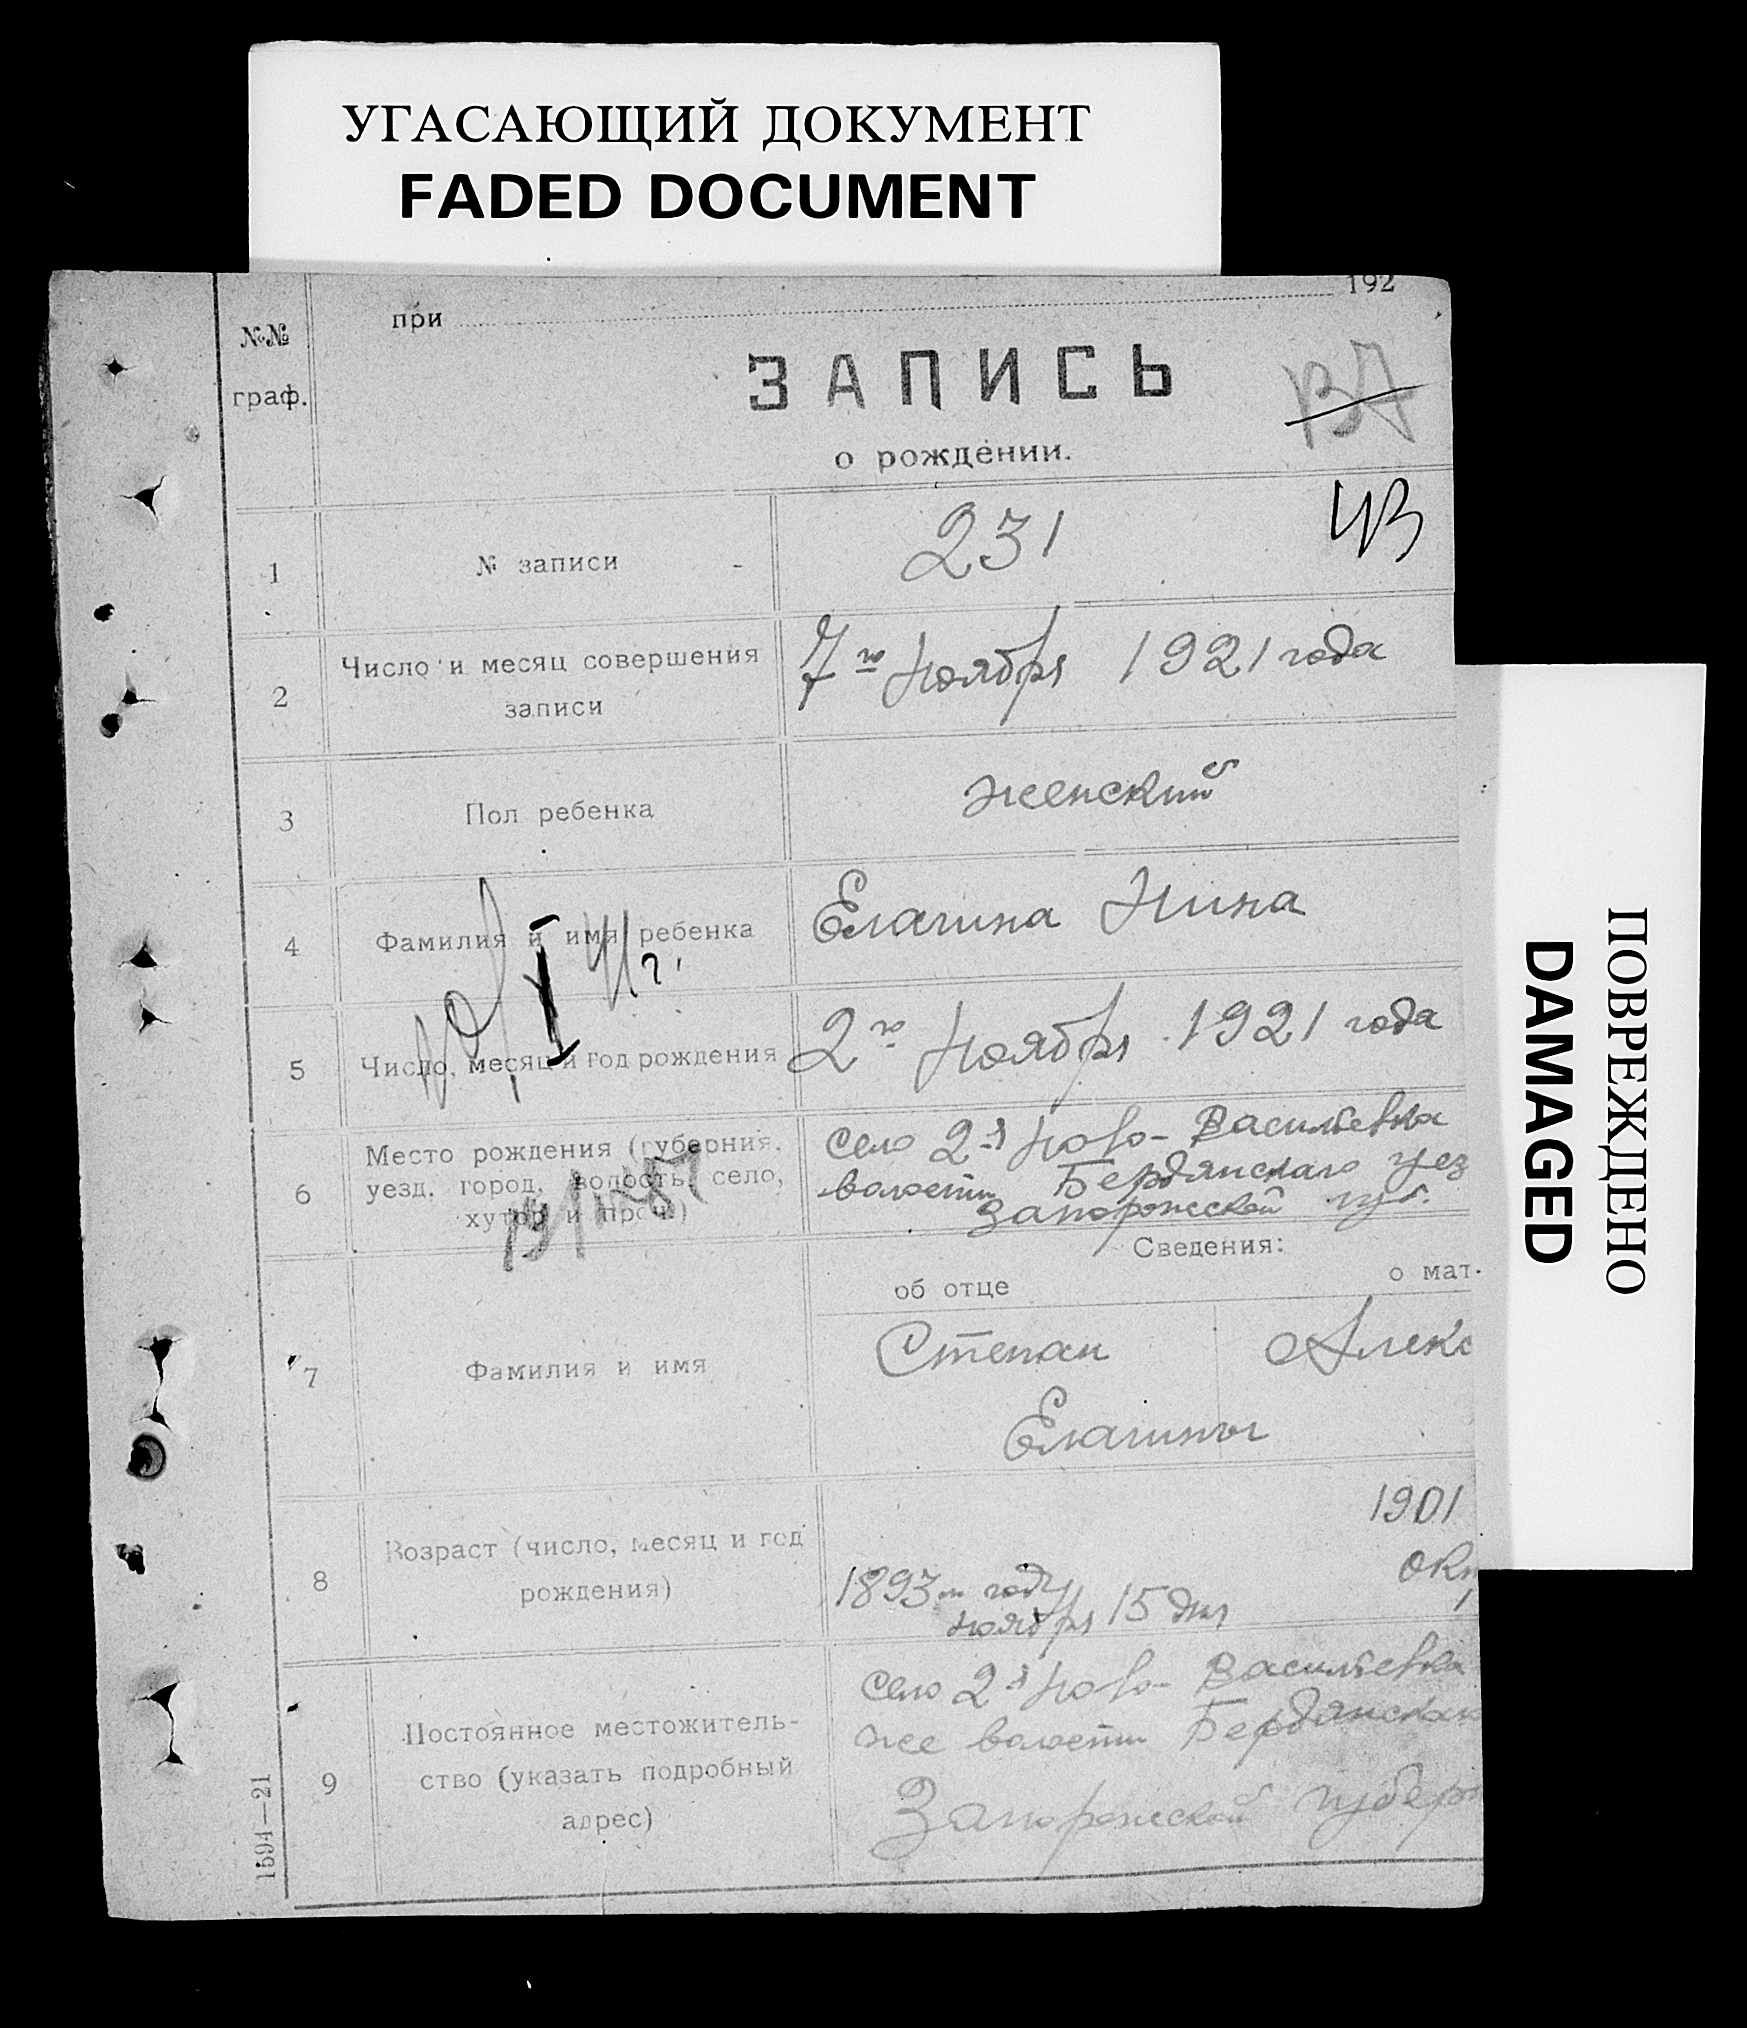 УГАСАЮЩИЙ ДОКУМЕНТ
FADED DOCUMENT
при 192
№№ граф.
ЗАПИСЬ
о рождении.
1 № записи - 231
2 Число и месяц совершения записи 7го ноября 1921 года
3 Пол ребенка женский
4 Фамилия и имя ребенка Елагина Нина
5 Число, месяц и год рождения 2го ноября 1921 года
6 Место рождения (губерния, уезд, город, волость, село, хутор и проч.)
село 2-я Ново-Васильевка
волости Бердянскаго уез
Запорожской губ.
Сведения:
об отце о мат
7 Фамилия и имя Степан Алекс
Елагины
8 Возраст (число, месяц и год рождения)
1893м году
ноября 15 дня
1901
окт
1
9 Постоянное местожительство (указать подробный адрес)
село 2я Ново-Васильевка
же волости Бердянскаг
Запорожской губерн
1594—21
ПОВРЕЖДЕНО
DAMAGED